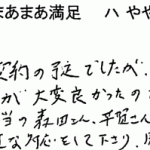 まあまあ満足 ハ やや
契約の予定でしたが、
が大変良かったの
当の森田さん、平冠さん
な対応をして下さり、